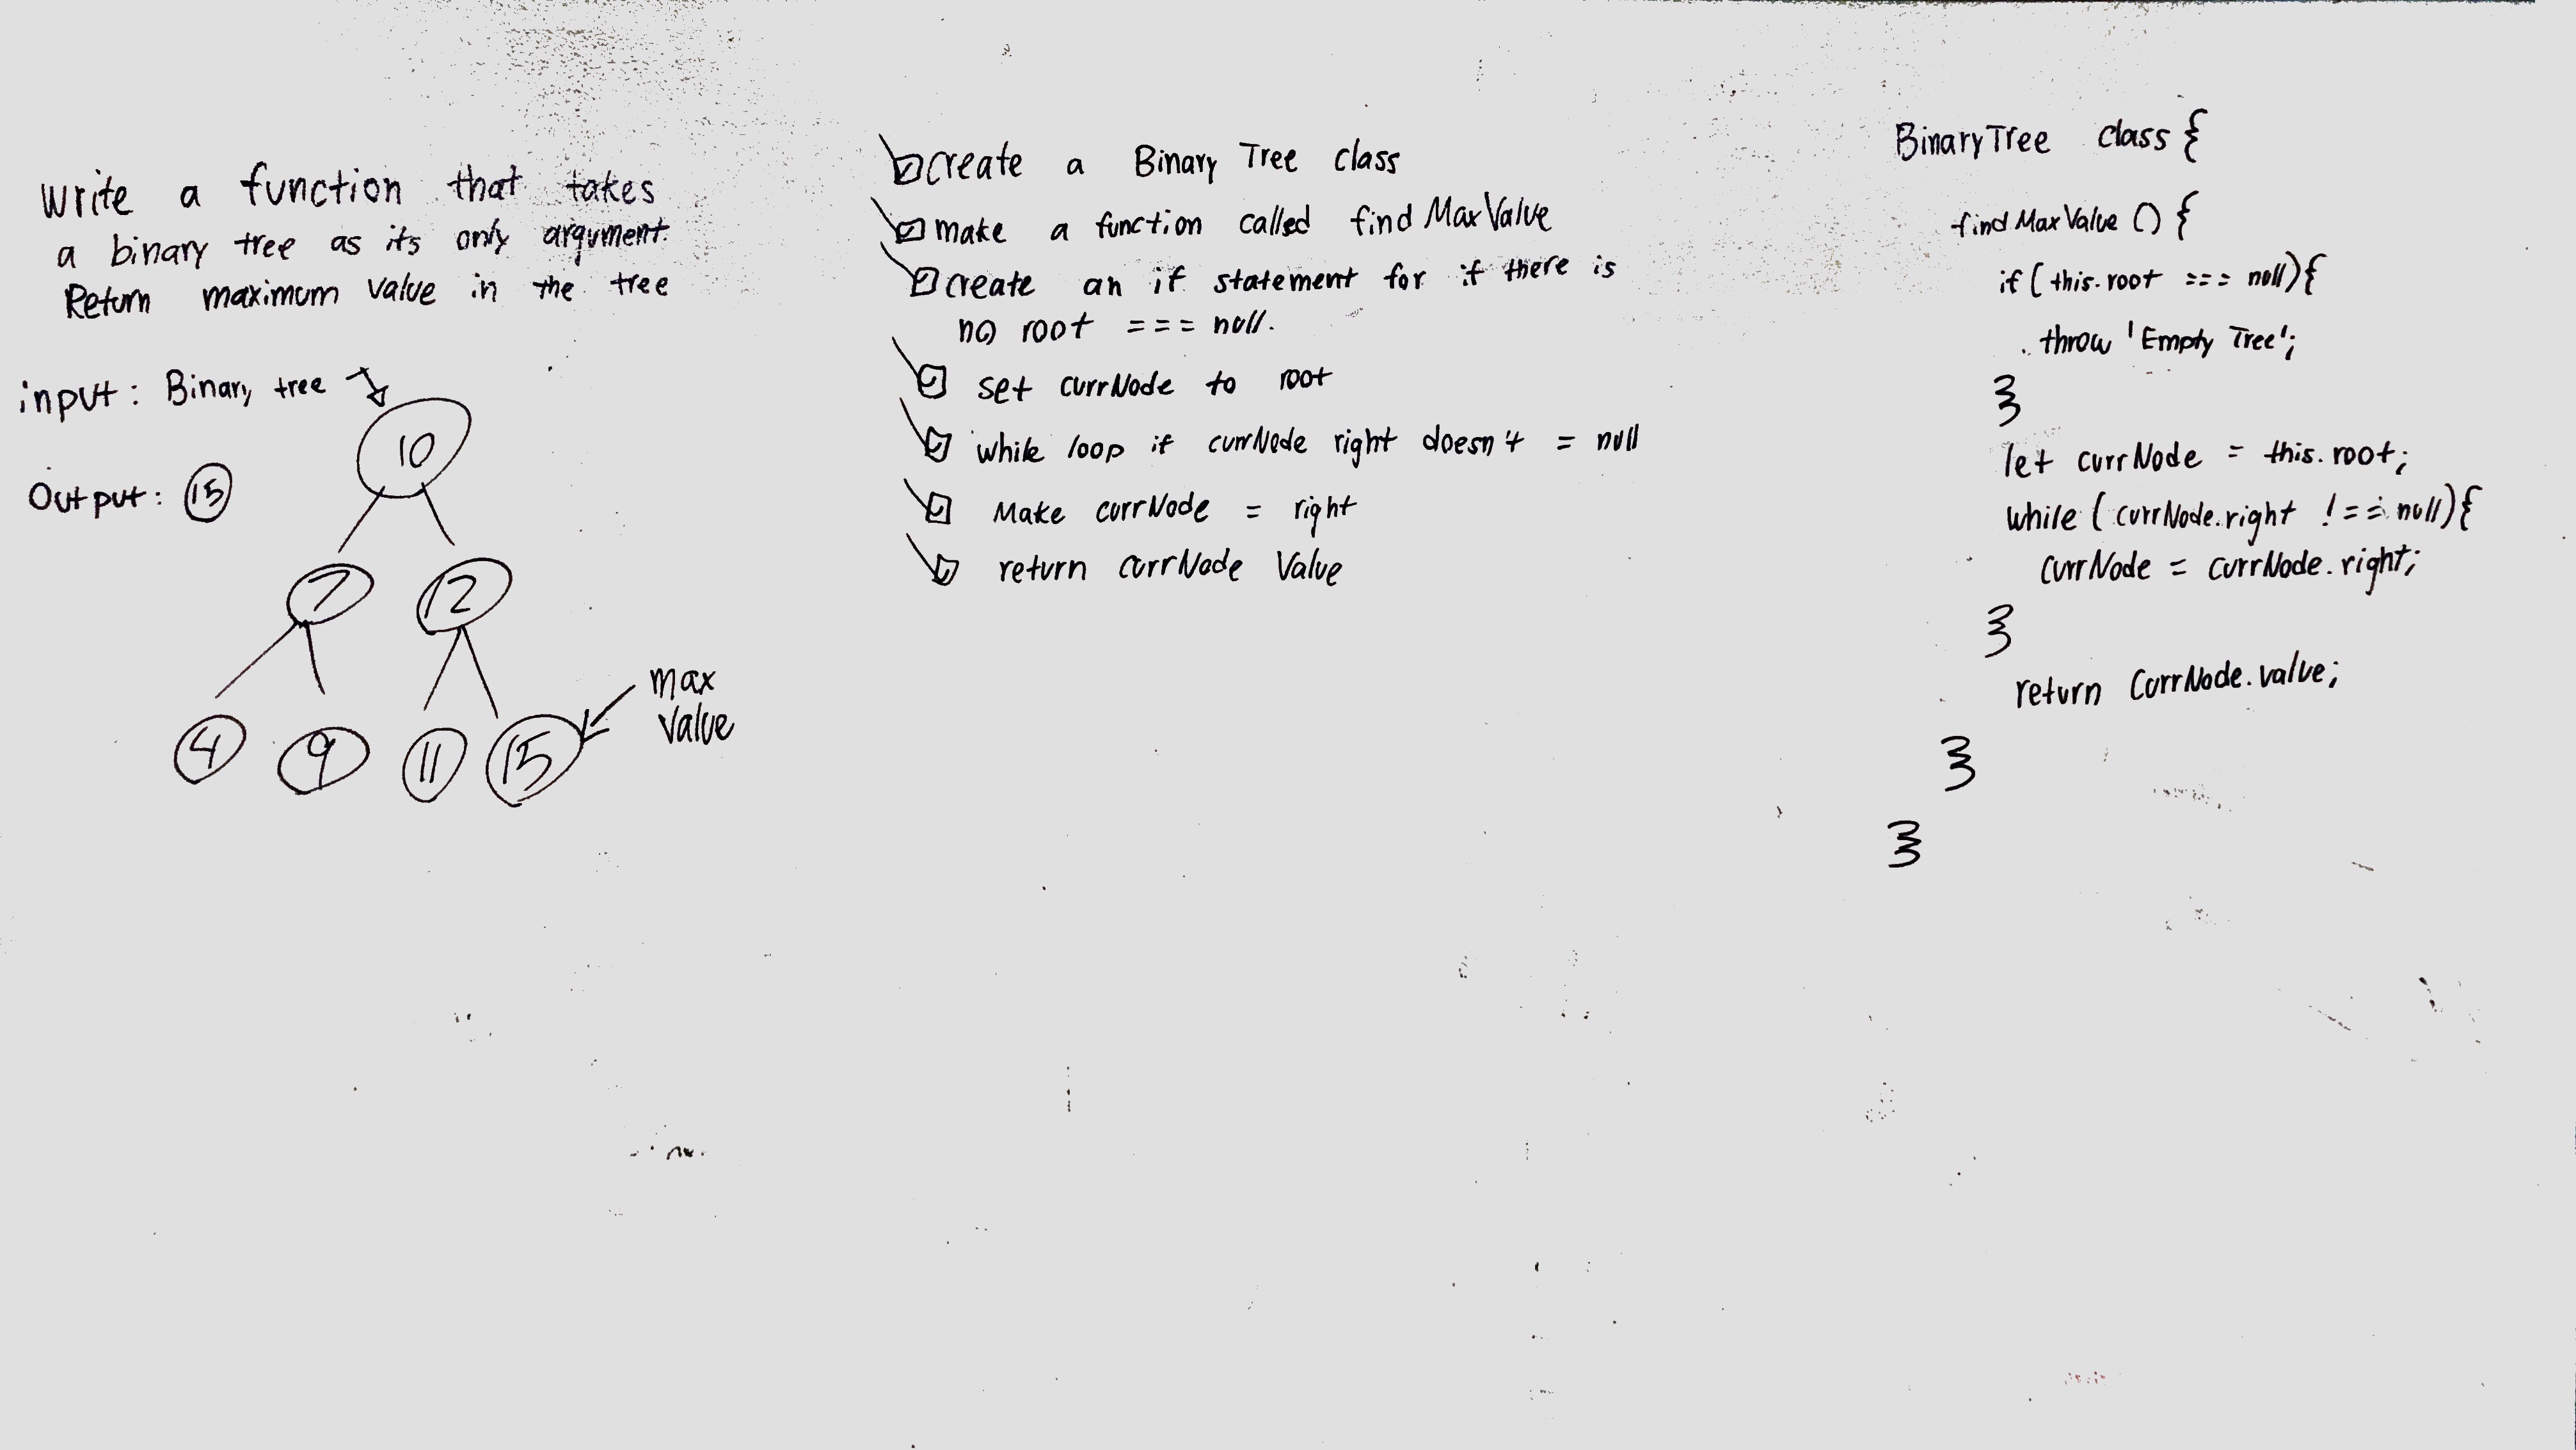 Write a function that takes
a binary tree as its only argument.
Return maximum value in the tree
input: Binary tree
10
Output: 15
7 12
4 9 11 15
max
Value
create a Binary Tree class
make a function called findMaxValue
create an if statement for if there is
no root === null.
set currNode to root
while loop if currNode right doesn't = null
Make currNode = right
return currNode Value
BinaryTree class {
findMaxValue () {
if ( this.root === null){
throw 'Empty Tree';
}
let currNode = this.root;
while ( currNode.right !== null){
currNode = currNode.right;
}
return CurrNode.value;
}
}